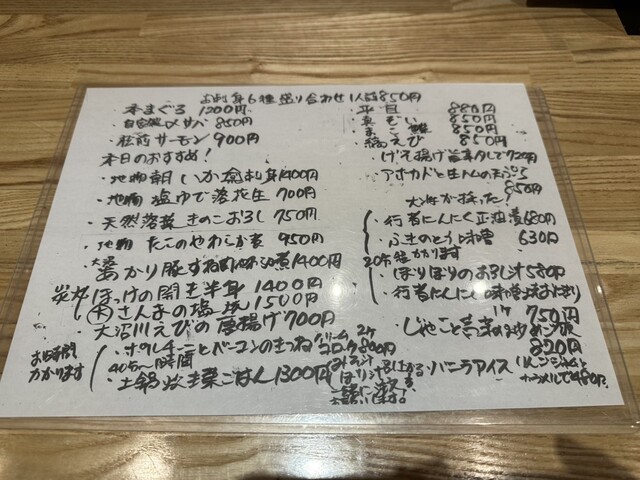 お刺身6種盛り合わせ1人前850円
本まぐろ 1200円
自家製〆サバ 850円
・サーモン 900円
本日のおすすめ!
・地物朝いか刺身1400円
・地物 塩ゆで落花生 700円
・天然落葉きのこおろし 750円
・地物 たこのやわらか煮 950円
大沼
あかり豚 1400円
炭火
ほっけの開き半身 1400円
さんまの塩焼 1500円
・大沼川えびの唐揚げ700円
お時間かかります
40分〜時間
・土鍋炊き栗ごはん1300円
クリームコロッケ
2ケ
800円
・平目 880円
・真ぞい 850円
・まこ鰈 850円
・縞えび 850円
・げそ揚げ 720円
・アボカドと生ハムの天ぷら
850円
大将が採った!
・行者にんにく正油漬680円
・ふきのとう味噌 630円
20分程かかります
・ほりほりのおろし汁580円
・行者にんにく味噌焼おにぎり
1ケ 750円
・じゃこと青菜
820円
・バニラアイス